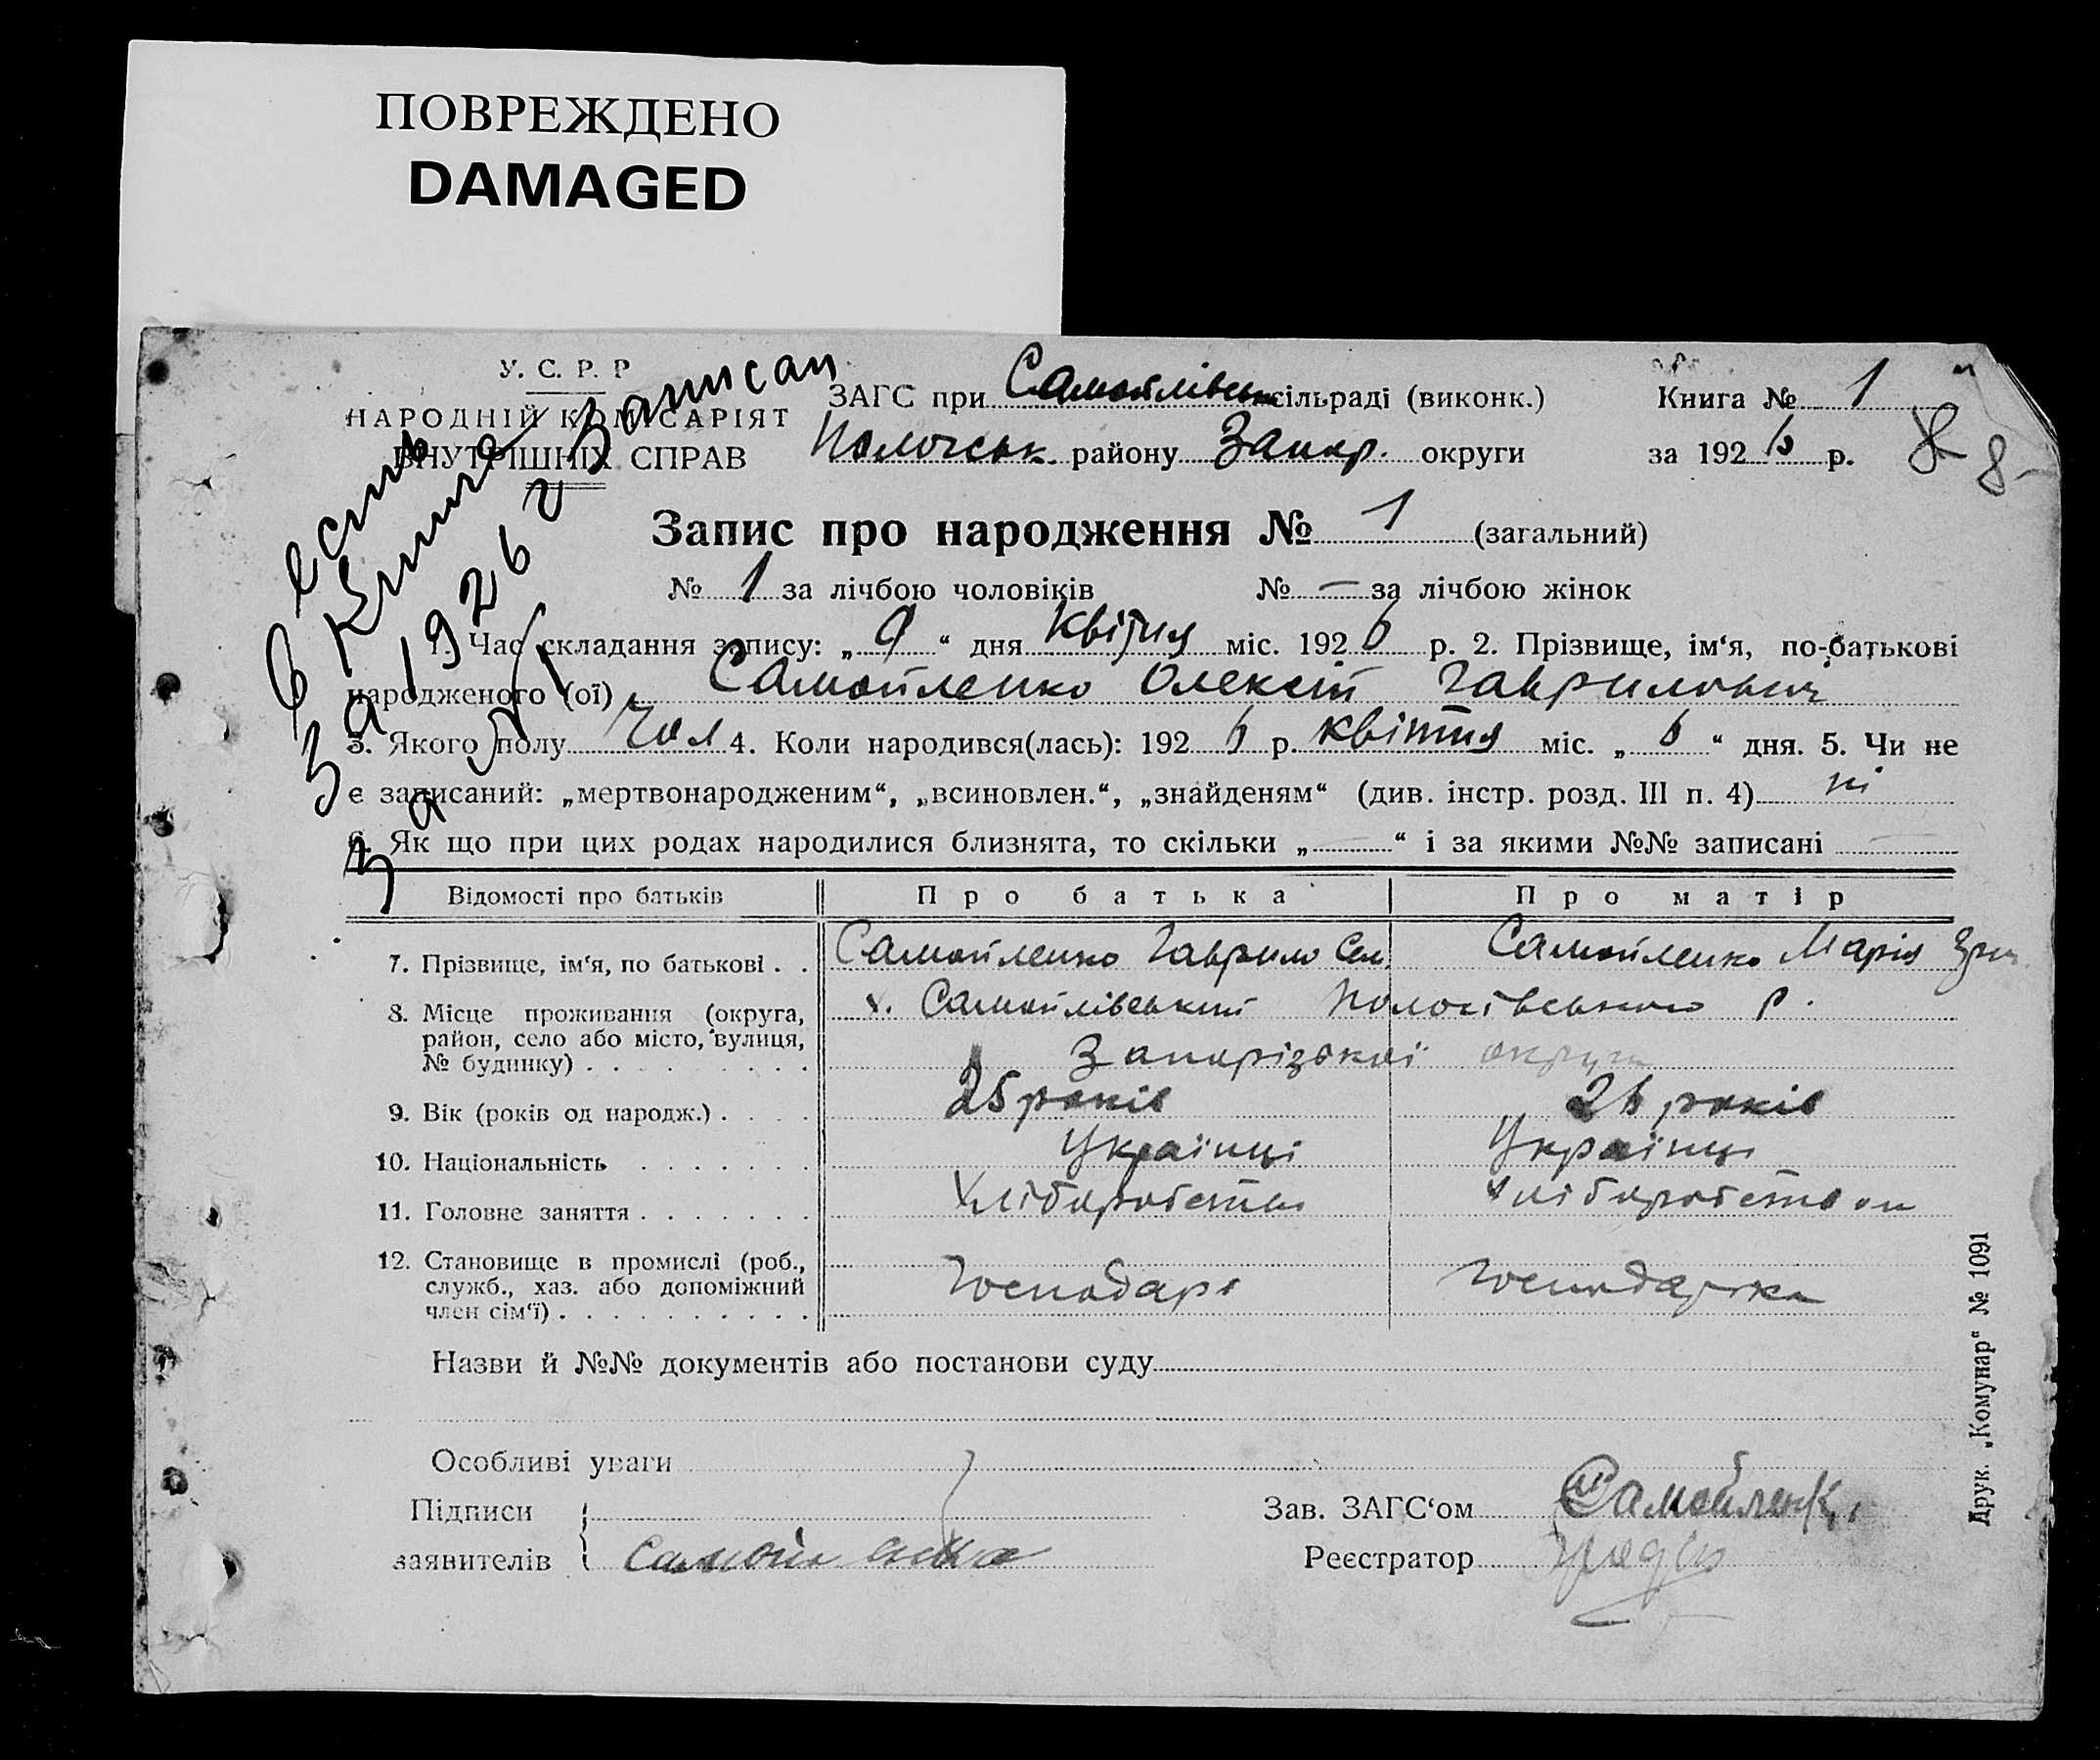 ПОВРЕЖДЕНО
DAMAGED
У. С. Р. Р
НАРОДНІЙ КОМІСАРІЯТ
ВНУТРІШНІХ СПРАВ
есть
в Книге записан
за 1926 г
за № 1
ЗАГС при Самойлівськ сільраді (виконк.)
Пологськ. району Запор. округи
Книга № 1
за 1926 р.
8
8-
Запис про народження № 1 (загальний)
№ 1 за лічбою чоловіків № — за лічбою жінок
1. Час складання запису: „9“ дня квітня міс. 1926 р. 2. Прізвище, ім‘я, по-батькові
народженого (ої) Самойленко Олексій Гаврилович
3. Якого полу чол 4. Коли народився(лась): 1926 р. квітня міс. „6“ дня. 5. Чи не
є записаний: „мертвонародженим“, „всиновлен.“, „знайденям“ (див. інстр. розд. III п. 4) ні
6. Як що при цих родах народилися близнята, то скільки „—“ і за якими №№ записані —
Відомості про батьків Про батька Про матір
7. Прізвище, ім‘я, по батькові . . Самойленко Гаврило Сем. Самойленко Марія
8. Місце проживання (округа, район, село або місто, вулиця, № будинку) . . . х. Самойлівський Пологівського р.
Запорізької округи
9. Вік (років од народж.) . . . 25 років 26 років
10. Національність . . . Українці Українці
11. Головне заняття . . . Хліборобство хліборобством
12. Становище в промислі (роб., служб., хаз. або допоміжний член сім‘ї) . . . Господарь господарка
Назви й №№ документів або постанови суду
Особливі уваги
Підписи
заявителів Самойленко
Зав. ЗАГС‘ом Самойленк.
Реєстратор
Друк. „Комунар“ № 1091